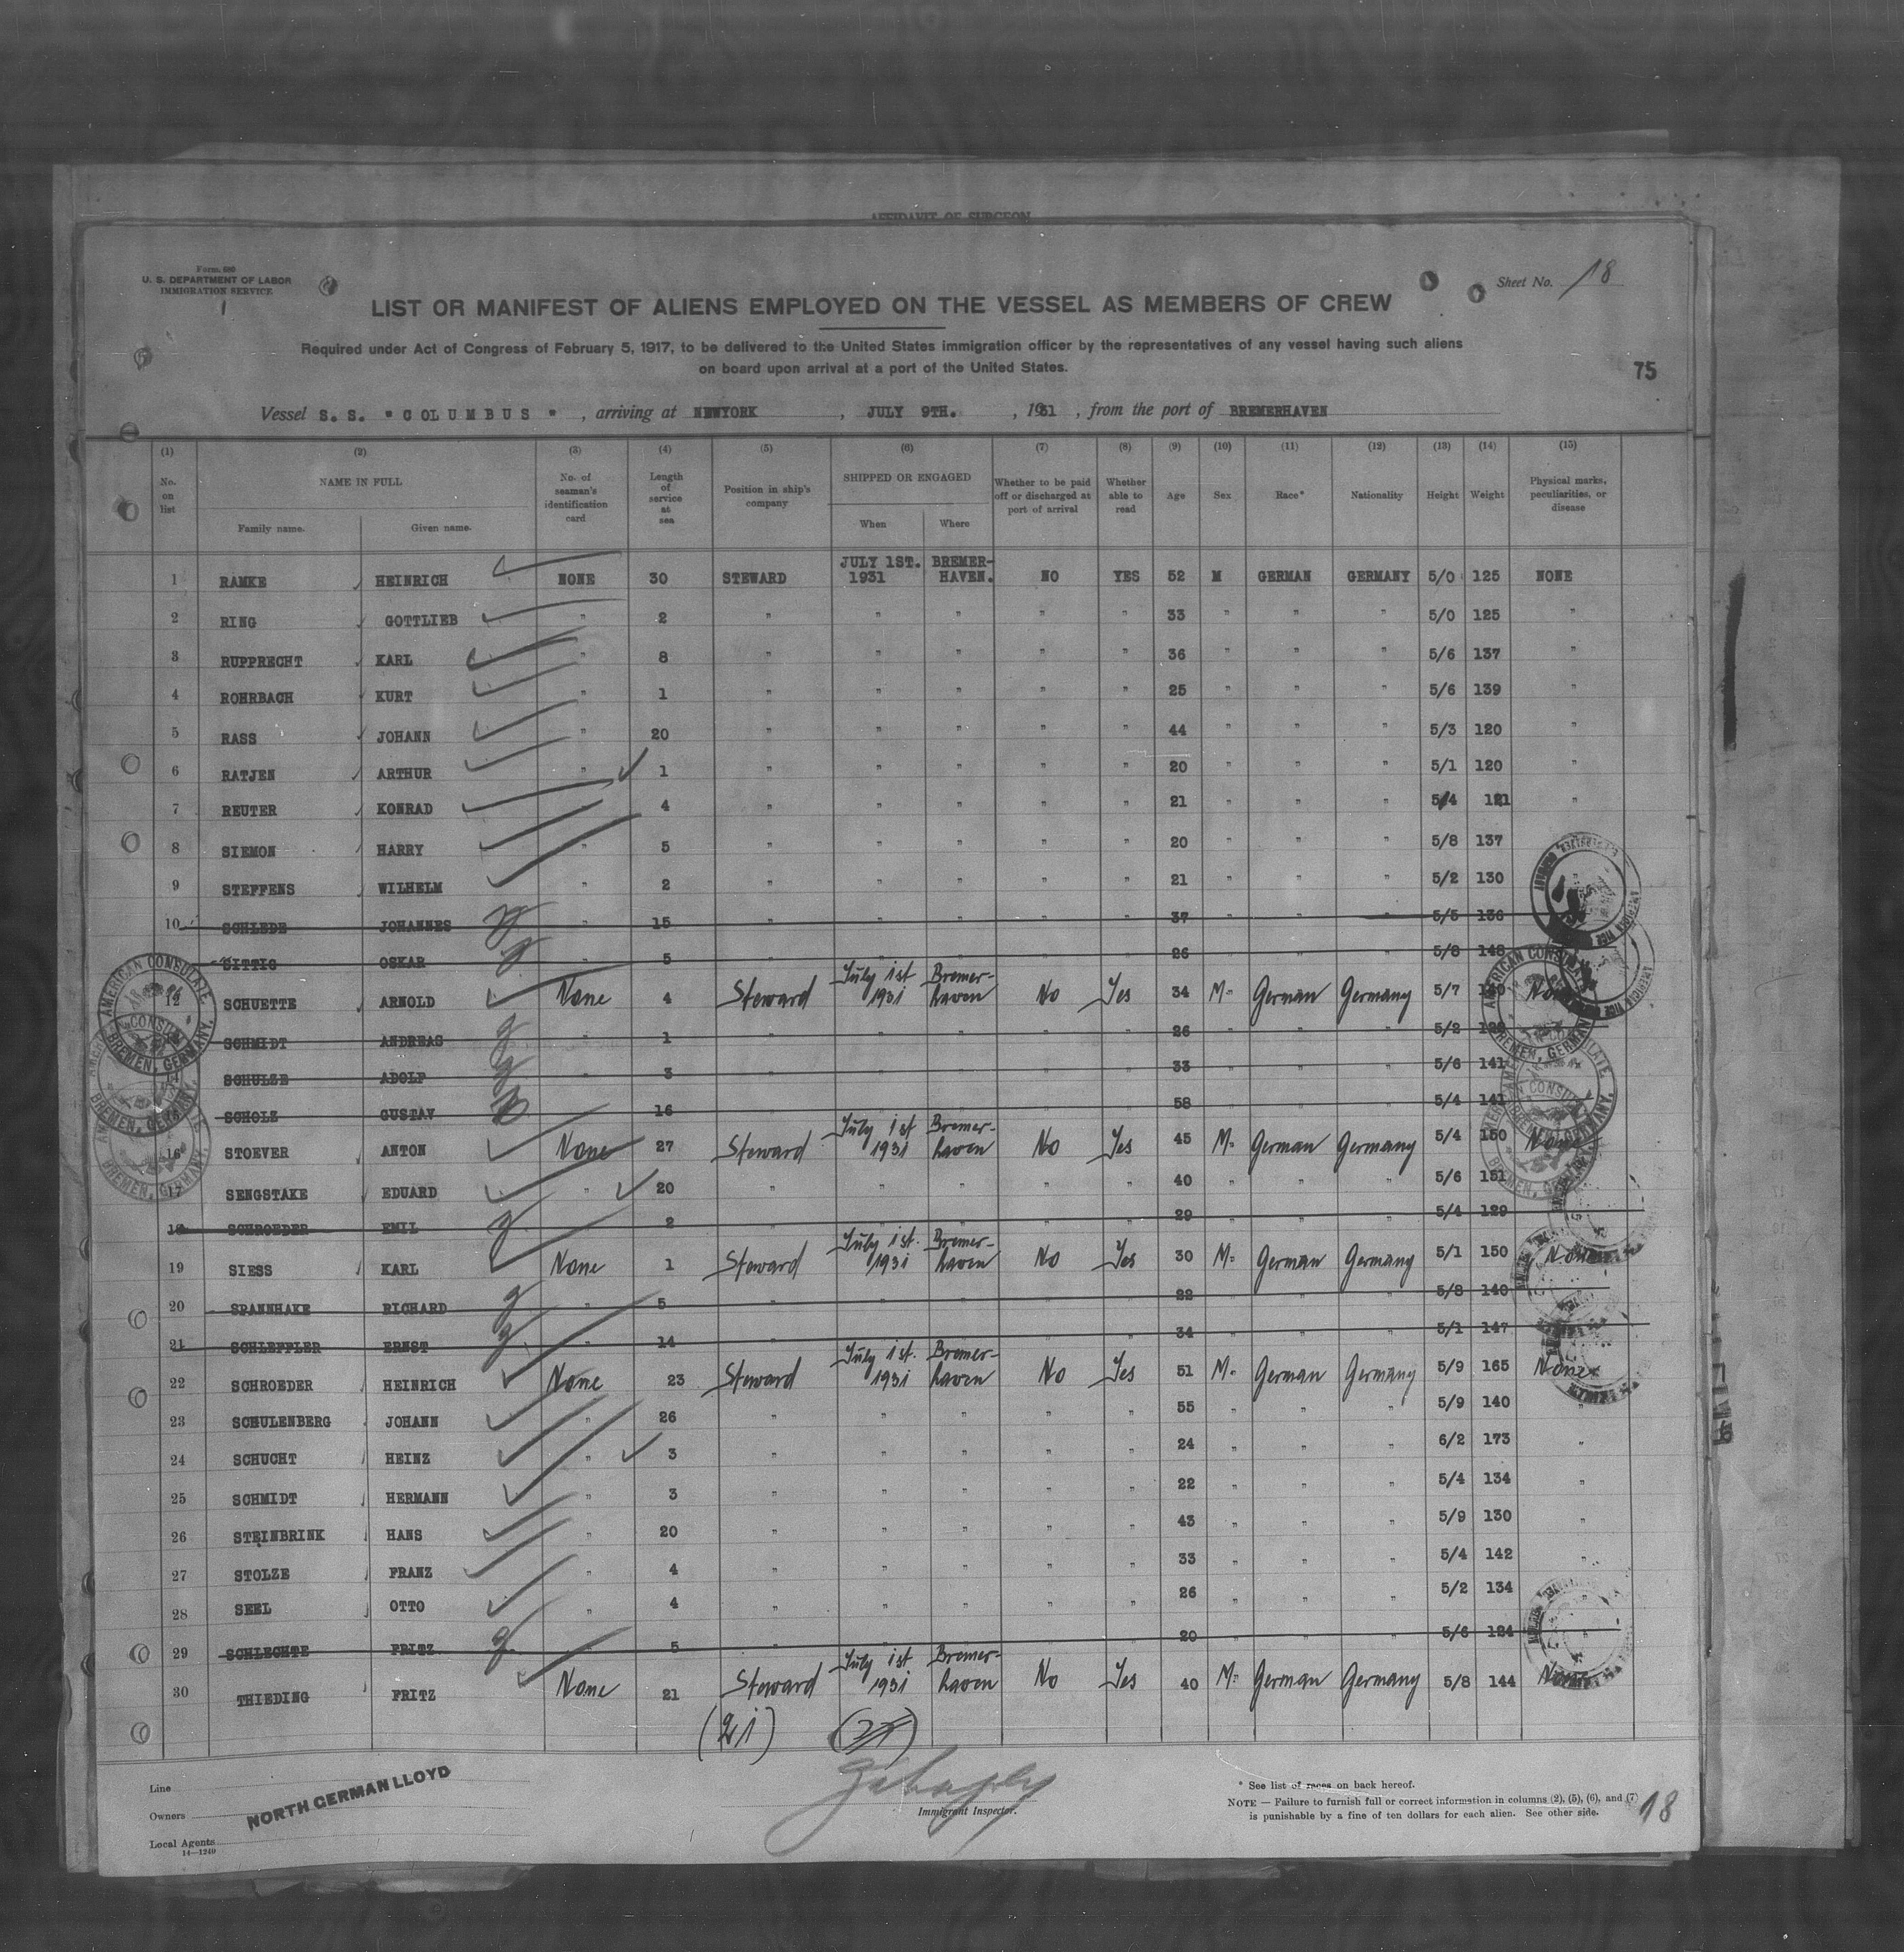 AFFIDAVIT OF SURGEON
Form 680
U. S. DEPARTMENT OF LABOR
IMMIGRATION SERVICE
1
Sheet No. 18
LIST OR MANIFEST OF ALIENS EMPLOYED ON THE VESSEL AS MEMBERS OF CREW
Required under Act of Congress of February 5, 1917, to be delivered to the United States immigration officer by the representatives of any vessel having such aliens
on board upon arrival at a port of the United States.
75
Vessel S. S. " COLUMBUS " , arriving at NEWYORK , JULY 9TH. , 1931 , from the port of BREMERHAVEN
(1) (2) (3) (4) (5) (6) (7) (8) (9) (10) (11) (12) (13) (14) (15)
No. on list NAME IN FULL Family name. Given name. No. of seaman's identification card Length of service at sea Position in ship's company SHIPPED OR ENGAGED When Where Whether to be paid off or discharged at port of arrival Whether able to read Age Sex Race* Nationality Height Weight Physical marks, peculiarities, or disease
1 RAMKE HEINRICH NONE 30 STEWARD JULY 1ST. 1931 BREMER-HAVEN. NO YES 52 M GERMAN GERMANY 5/0 125 NONE
2 RING GOTTLIEB " 2 " " " " " 33 " " " 5/0 125 "
3 RUPPRECHT KARL " 8 " " " " " 36 " " " 5/6 137 "
4 ROHRBACH KURT " 1 " " " " " 25 " " " 5/6 139 "
5 RASS JOHANN " 20 " " " " " 44 " " " 5/3 120 "
6 RATJEN ARTHUR " 1 " " " " " 20 " " " 5/1 120 "
7 REUTER KONRAD " 4 " " " " " 21 " " " 5/4 121 "
8 SIEMON HARRY " 5 " " " " " 20 " " " 5/8 137
9 STEFFENS WILHELM " 2 " " " " " 21 " " " 5/2 130
10 SCHLEDE JOHANNES 15 " " " " " 37 " " " 5/5 136
SITTIG OSKAR 5 " " " " " 26 " " " 5/8 148
12 SCHUETTE ARNOLD None 4 Steward July 1st 1931 Bremer-haven No Yes 34 M. German Germany 5/7 None
SCHMIDT ANDREAS 1 " " " " " 26 " " " 5/2
14 SCHULZE ADOLF 3 " " " " " 33 " " " 5/6 141
15 SCHOLZ GUSTAV 16 " " " " " 58 " " " 5/4 141
16 STOEVER ANTON None 27 Steward July 1st 1931 Bremer-haven No Yes 45 M. German Germany 5/4 150 None
17 SENGSTAKE EDUARD " 20 " " " " " 40 " " " 5/6 151
18 SCHROEDER EMIL 2 " " " " " 29 " " " 5/4 129
19 SIESS KARL None 1 Steward July 1st. 1931 Bremer-haven No Yes 30 M. German Germany 5/1 150 None
20 SPANNHAKE RICHARD " 5 " " " " " 22 " " " 5/8 140
21 SCHLEFFLER ERNST " 14 " " " " " 34 " " " 5/1 147
22 SCHROEDER HEINRICH None 23 Steward July 1st. 1931 Bremer-haven No Yes 51 M. German Germany 5/9 165 None
23 SCHULENBERG JOHANN " 26 " " " " " 55 " " " 5/9 140 "
24 SCHUCHT HEINZ " 3 " " " " " 24 " " " 6/2 173 "
25 SCHMIDT HERMANN " 3 " " " " " 22 " " " 5/4 134 "
26 STEINBRINK HANS " 20 " " " " " 43 " " " 5/9 130 "
27 STOLZE FRANZ " 4 " " " " " 33 " " " 5/4 142 "
28 SEEL OTTO " 4 " " " " " 26 " " " 5/2 134 "
29 SCHLECHTE FRITZ 5 " " " " " 20 " " " 5/6 124
30 THIEDING FRITZ None 21 Steward July 1st 1931 Bremer-haven No Yes 40 M. German Germany 5/8 144 None
(21)
AMERICAN CONSULATE BREMEN, GERMANY.
Line
Owners
Local Agents
NORTH GERMAN LLOYD
14—1240
Immigrant Inspector.
* See list of races on back hereof.
NOTE — Failure to furnish full or correct information in columns (2), (5), (6), and (7)
is punishable by a fine of ten dollars for each alien. See other side.
18